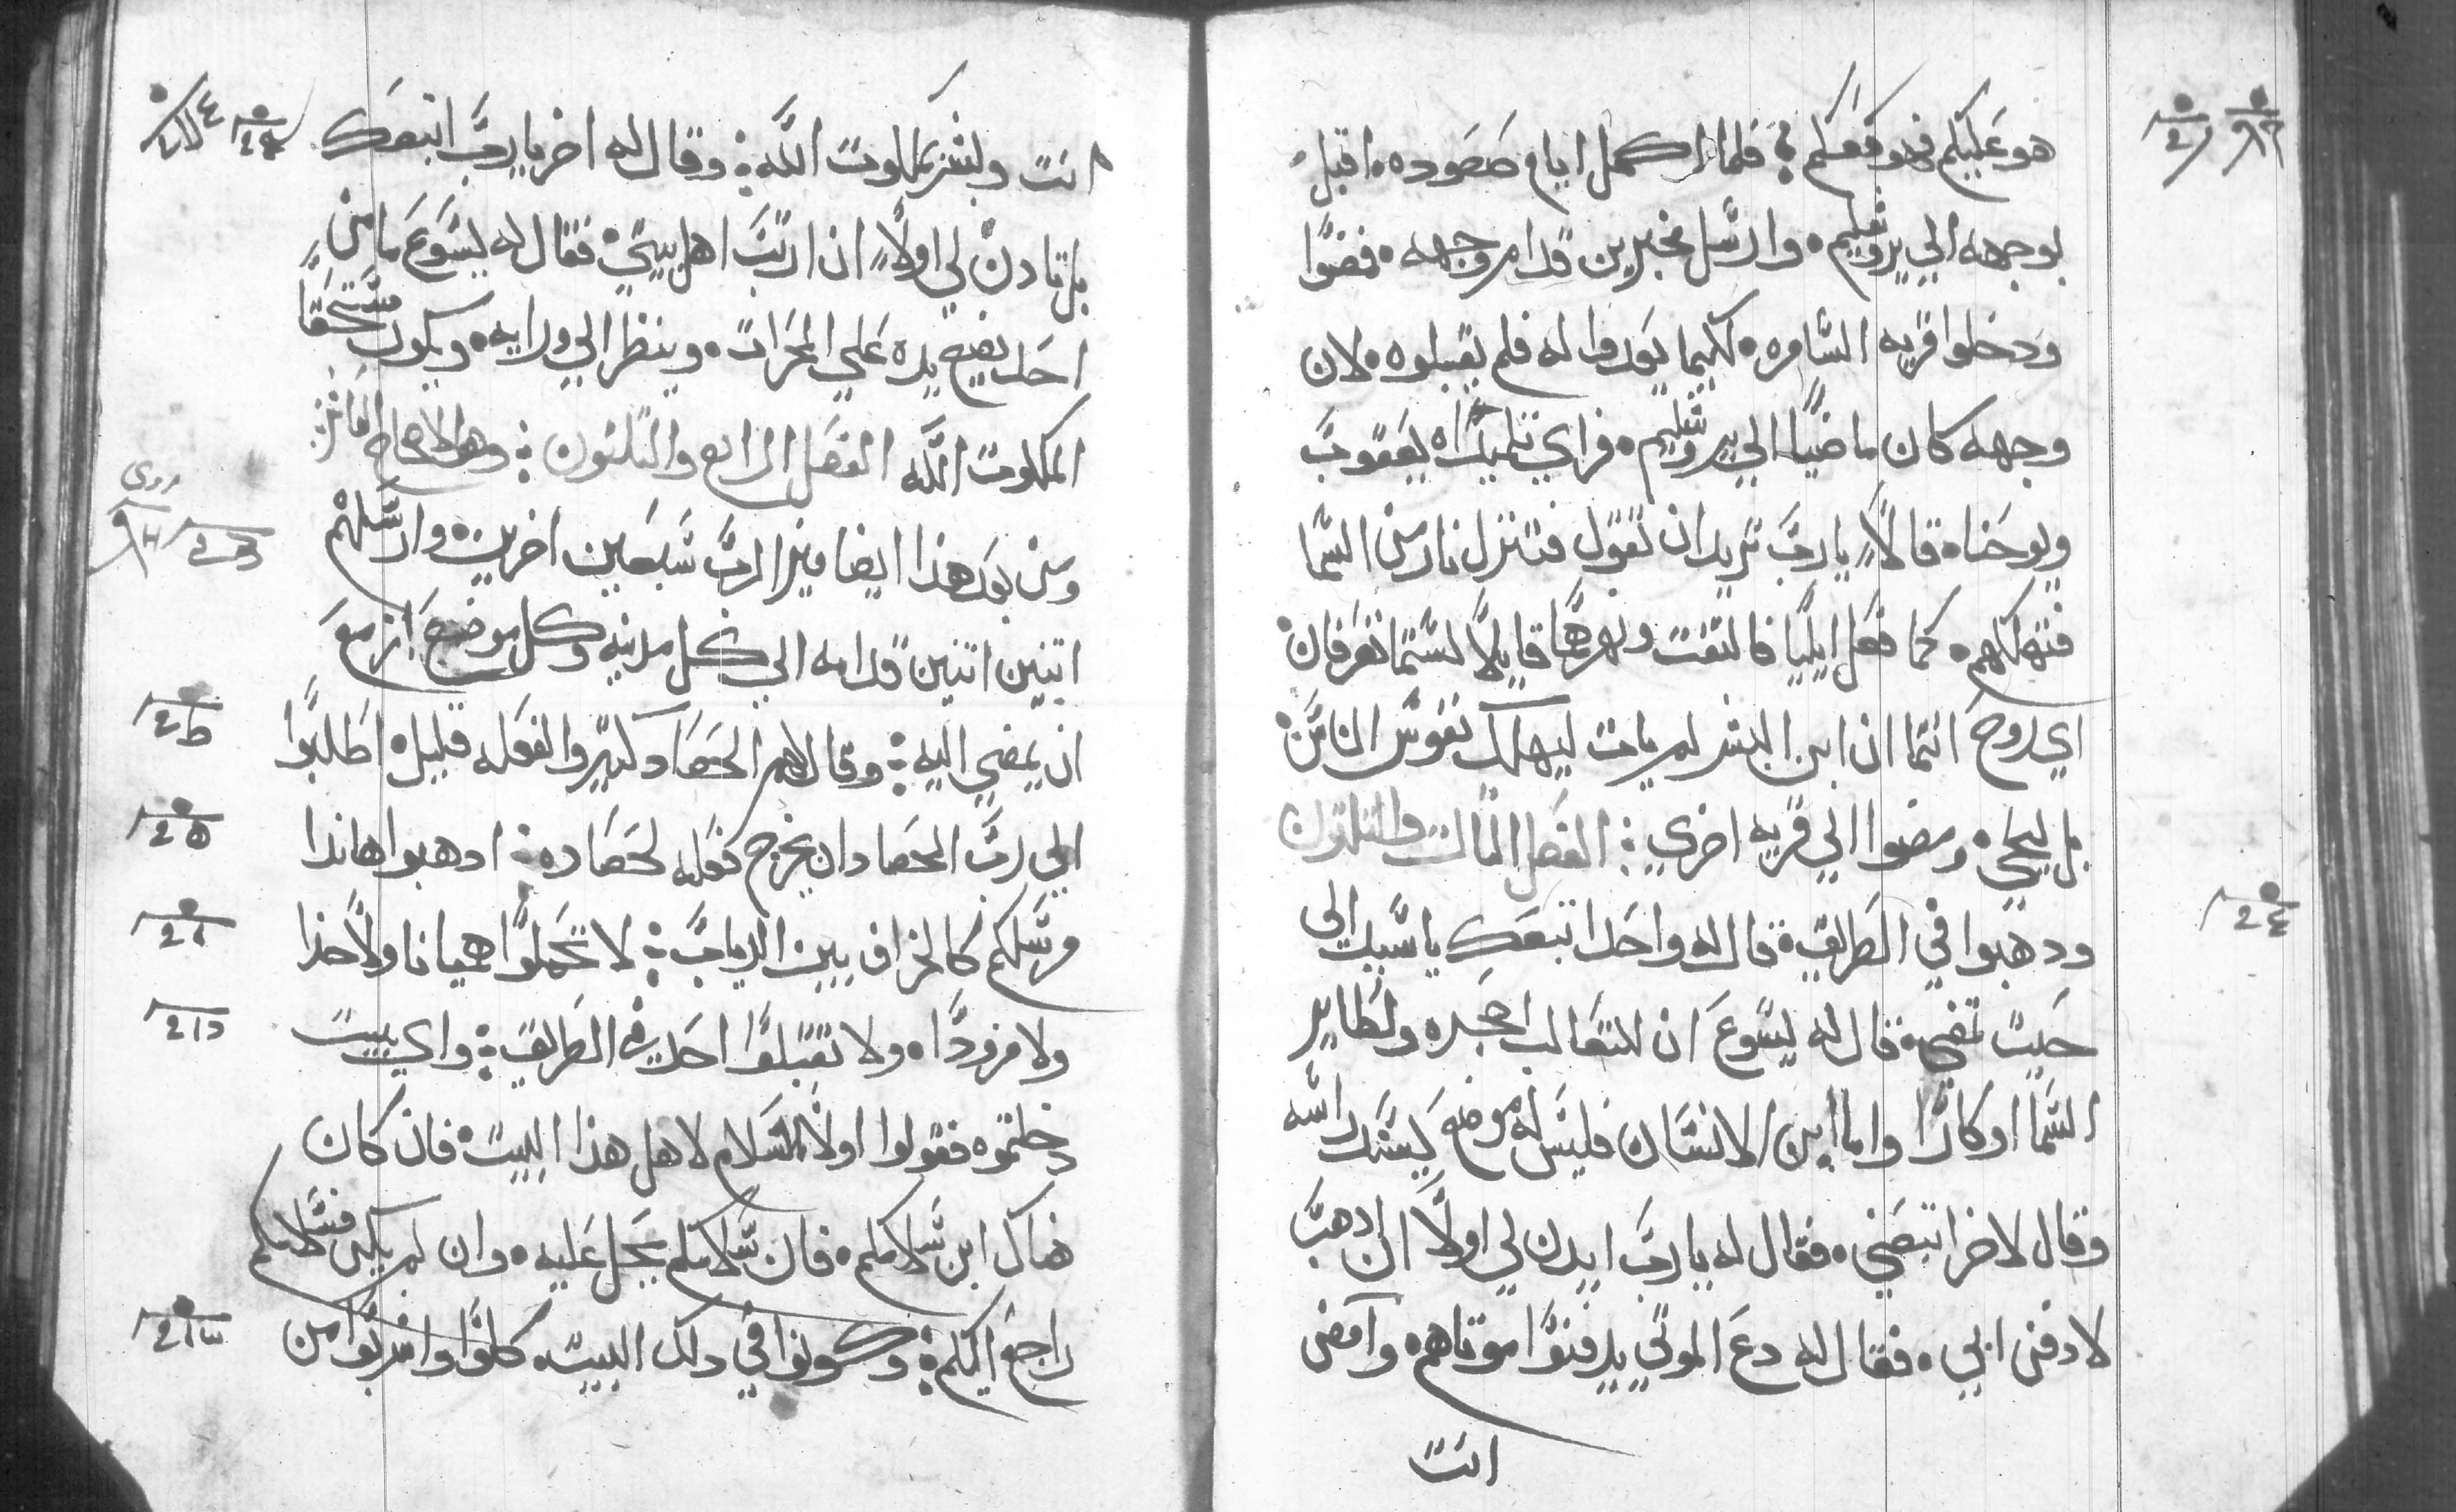 هو عليكم فهو معكم؛ فلما اكمل ايام صعوده، اقبل
بوجهه الي يروشليم، وارسل مخبرين قدام وجهه، فمضوا
ودخلوا قريه السامره، لكيما يعدوا له فلم يقبلوه، لان
وجهه كان ماضيًا الي يروشليم، فراي تلميداه يعقوب
ويوحنا، قالاً يارب تريد ان نقول فتنزل نار من السما
فتهلكهم، كما فعل ايليا فالتفت ونهرهما قايلاً لستما تعرفان
اي روح انتما ان ابن البشر لم يات ليهلك نفوس الناس
بل ليحيي، ومضوا الي قريه اخري؛ الفصل التالت والتلتون
ودهبوا في الطريق، قال له واحد اتبعك ياسيد الي
حيت تمضي، قال له يسوع ان للتعالب اجحره ولطاير
السما اوكارًا واما ابن الانسان فليس له موضع يسند راسه
وقال لاخر اتبعني، فقال له يارب ايدن لي اولاً ان ادهب
لادفن ابي، فقال له دع الموتي يدفنوا موتاهم، وامضي
انت
انت وبشر بملكوت الله؛ وقال له اخر يارب اتبعك
بل تادن لي اولاً ان ارتب اهل بيتي، فقال له يسوع ما من
احد يضع يده علي المحرات، وينظر الي ورايه، ويكون مستحقًا
الملكوت الله الفصل الرابع والتلتون؛
ومن بعد هذا ايضا ميز الرب سبعين اخرين، وارسلهم
اتنين اتنين قدامه الي كل مدينه وكل موضع ازمع
ان يمضي اليه؛ وقال لهم الحصاد كتير والفعله قليل، اطلبوا
الي رب الحصاد ان يخرج فعله لحصاده؛ ادهبوا هاندا
مرسلكم كالخراف بين الدياب؛ لا تحملوا هميانا ولا حذا
ولا مزودًا، ولا تقبلوا احد في الطريق؛ واي بيت
دخلتموه فقولوا اولا السلام لاهل هذا البيت، فان كان
هناك ابن سلامكم، فان سلامكم يحل عليه، وان لم يكن فسلامكم
راجع اليكم؛ وكونوا في دلك البيت، كلوا واشربوا من